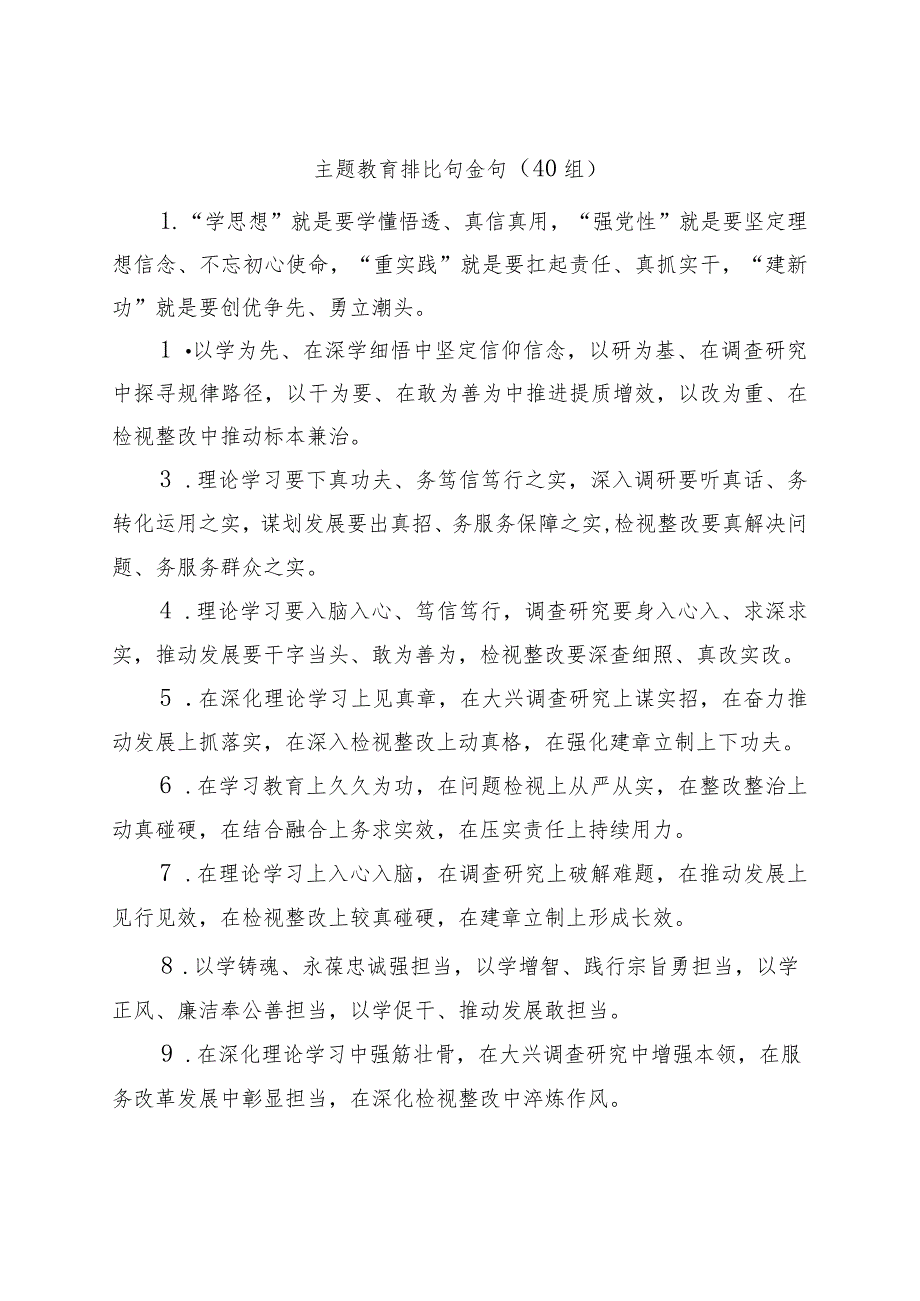 主题教育排比句金句（40 组）
1. “学思想”就是要学懂悟透、真信真用，“强党性”就是要坚定理
想信念、不忘初心使命，“重实践”就是要扛起责任、真抓实干，“建新
功”就是要创优争先、勇立潮头。
1 •以学为先、在深学细悟中坚定信仰信念，以研为基、在调查研究
中探寻规律路径，以干为要、在敢为善为中推进提质增效，以改为重、在
检视整改中推动标本兼治。
3 .理论学习要下真功夫、务笃信笃行之实，深入调研要听真话、务
转化运用之实，谋划发展要出真招、务服务保障之实,检视整改要真解决问
题、务服务群众之实。
4 .理论学习要入脑入心、笃信笃行，调查研究要身入心入、求深求
实，推动发展要干字当头、敢为善为，检视整改要深查细照、真改实改。
5 .在深化理论学习上见真章，在大兴调查研究上谋实招，在奋力推
动发展上抓落实，在深入检视整改上动真格，在强化建章立制上下功夫。
6 .在学习教育上久久为功，在问题检视上从严从实，在整改整治上
动真碰硬，在结合融合上务求实效，在压实责任上持续用力。
7 .在理论学习上入心入脑，在调查研究上破解难题，在推动发展上
见行见效，在检视整改上较真碰硬，在建章立制上形成长效。
8 .以学铸魂、永葆忠诚强担当，以学增智、践行宗旨勇担当，以学
正风、廉洁奉公善担当，以学促干、推动发展敢担当。
9 .在深化理论学习中强筋壮骨，在大兴调查研究中增强本领，在服
务改革发展中彰显担当，在深化检视整改中淬炼作风。